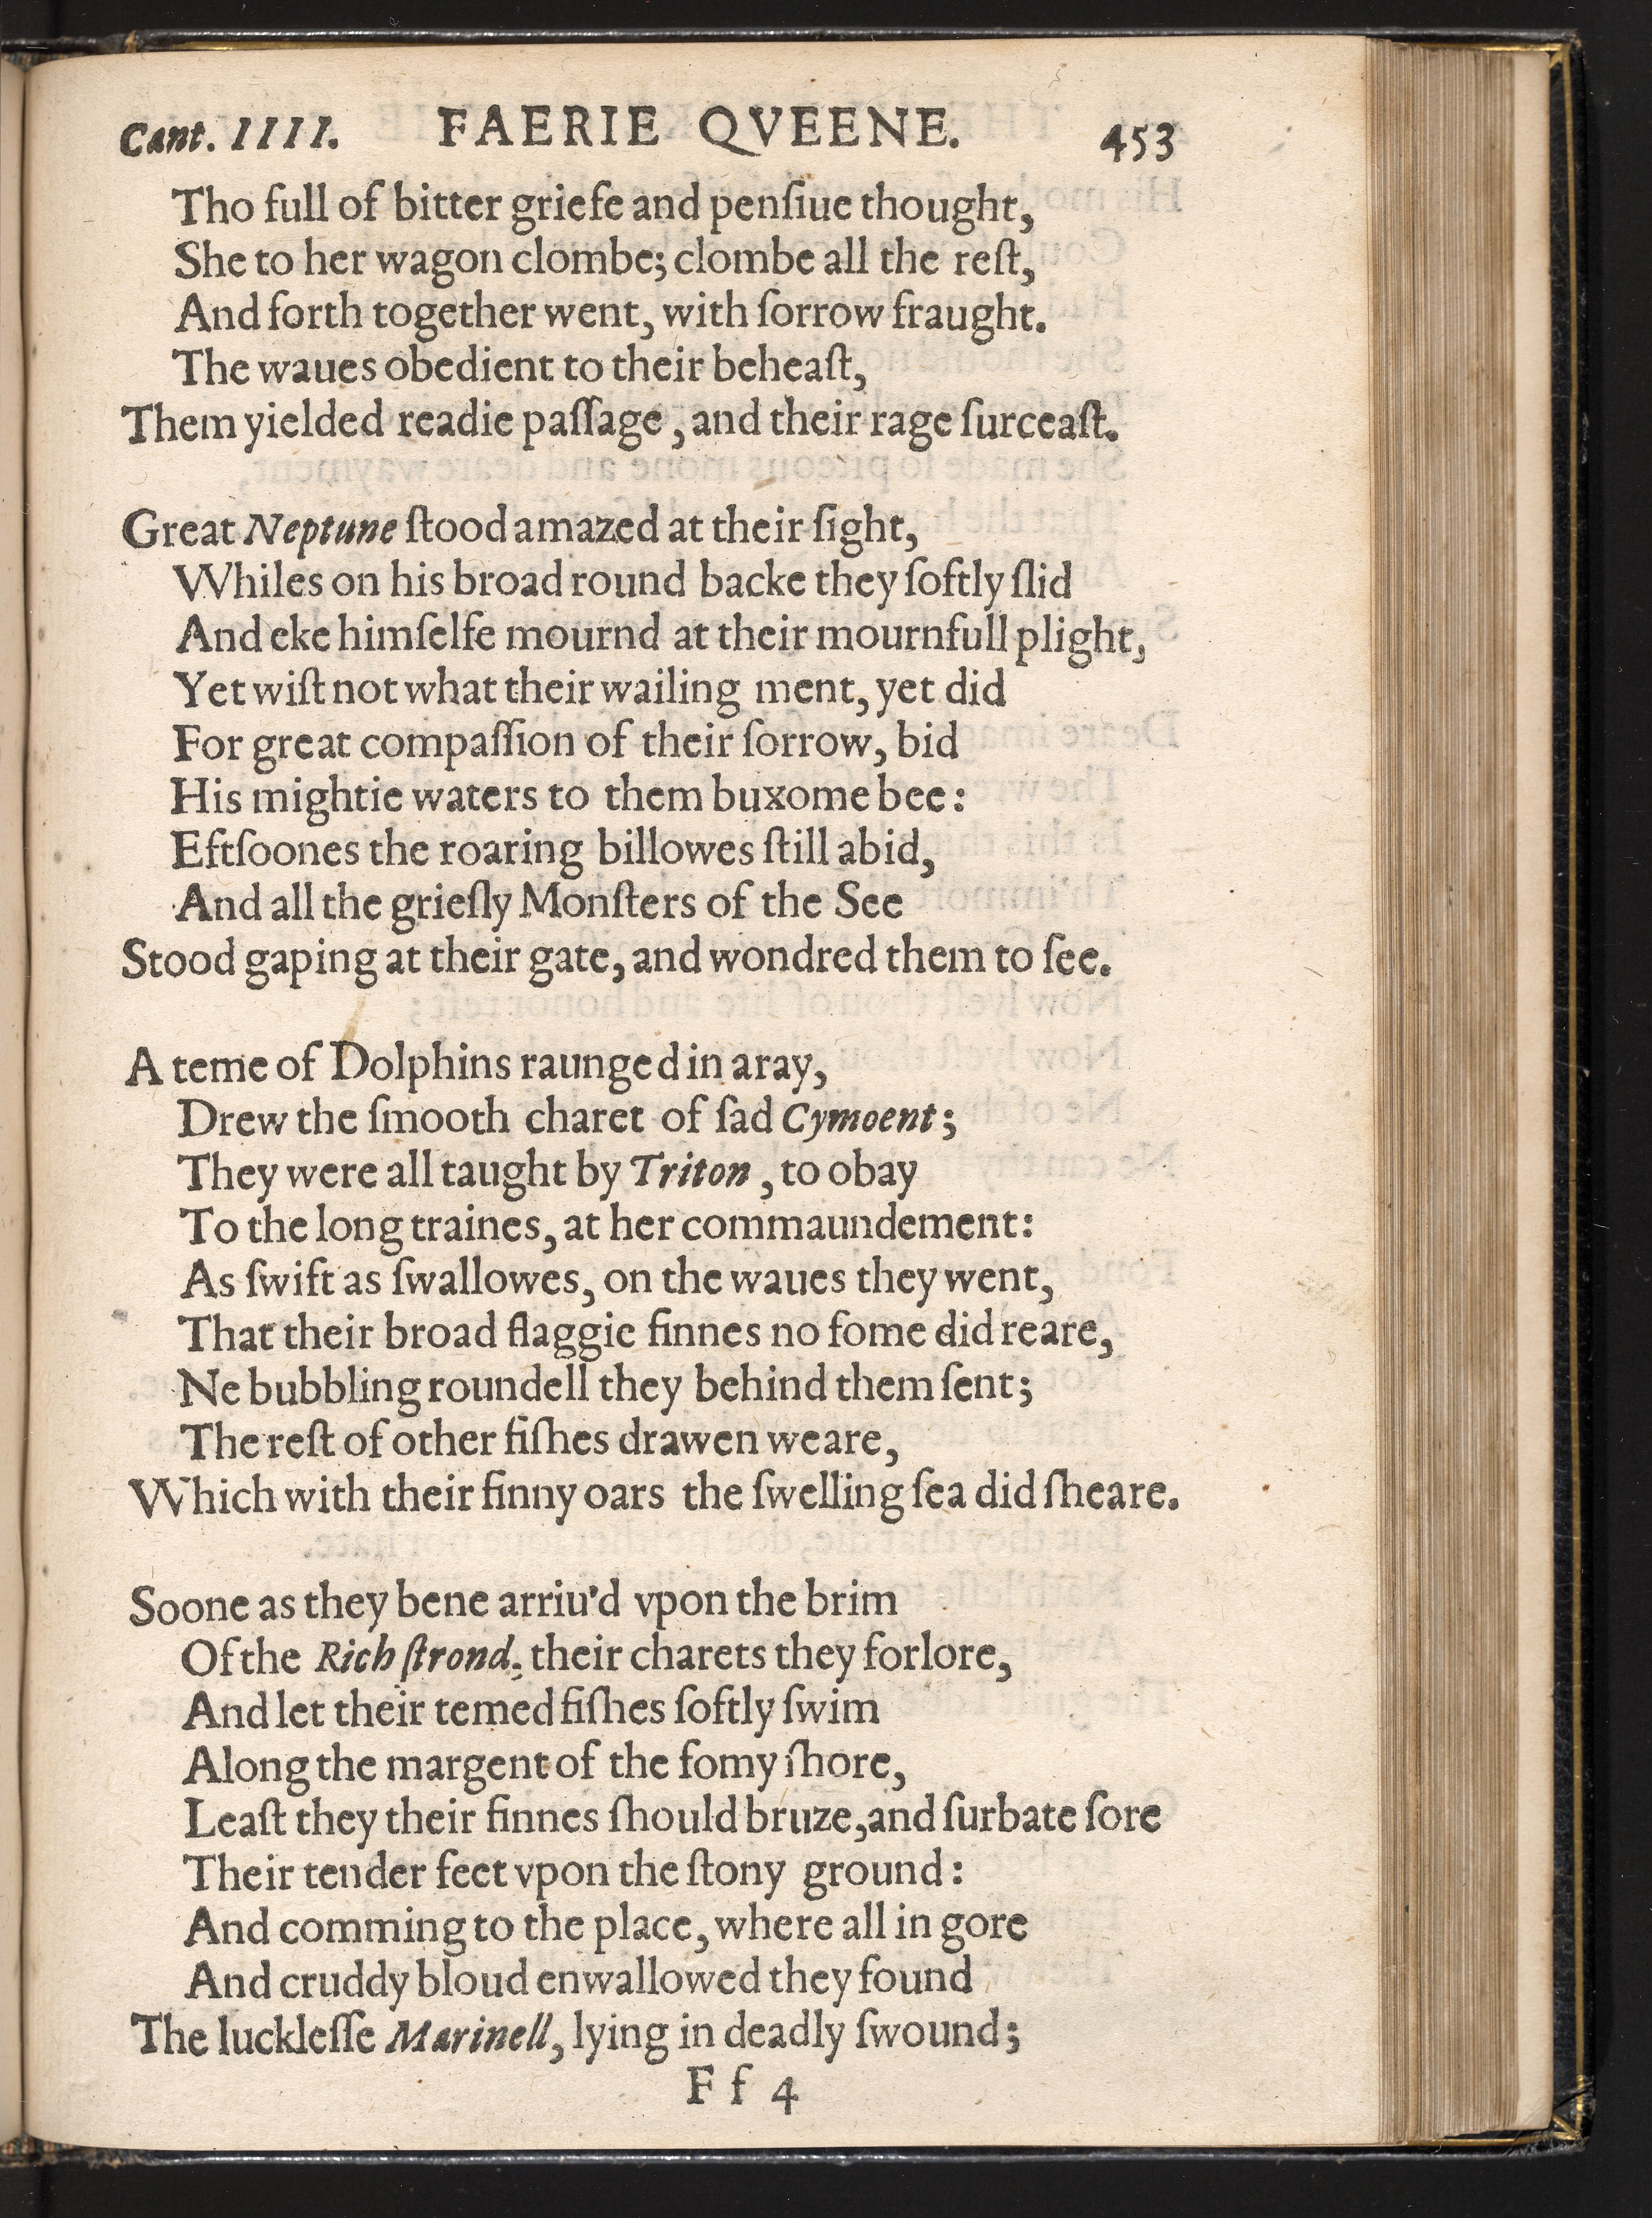 Cant. IIII. FAERIE QVEENE. 453
Tho full of bitter griefe and penſiue thought,
She to her wagon clombe; clombe all the reſt,
And forth together went, with ſorrow fraught.
The waues obedient to their beheaſt,
Them yielded readie paſſage, and their rage ſurceaſt.
Great Neptune ſtood amazed at their ſight,
Whiles on his broad round backe they ſoftly ſlid
And eke himſelfe mournd at their mournfull plight,
Yet wiſt not what their wailing ment, yet did
For great compaſſion of their ſorrow, bid
His mightie waters to them buxome bee:
Eftſoones the roaring billowes ſtill abid,
And all the grieſly Monſters of the See
Stood gaping at their gate, and wondred them to ſee.
A teme of Dolphins raunged in aray,
Drew the ſmooth charet of ſad Cymoent;
They were all taught by Triton, to obay
To the long traines, at her commaundement:
As ſwift as ſwallowes, on the waues they went,
That their broad flaggie finnes no fome did reare,
Ne bubbling roundell they behind them ſent;
The reſt of other fiſhes drawen weare,
Which with their finny oars the ſwelling ſea did ſheare.
Soone as they bene arriu'd vpon the brim
Of the Rich ſtrond, their charets they forlore,
And let their temed fiſhes ſoftly ſwim
Along the margent of the fomy ſhore,
Leaſt they their finnes ſhould bruze, and ſurbate ſore
Their tender feet vpon the ſtony ground:
And comming to the place, where all in gore
And cruddy bloud enwallowed they found
The luckleſſe Marinell, lying in deadly ſwound;
F f 4